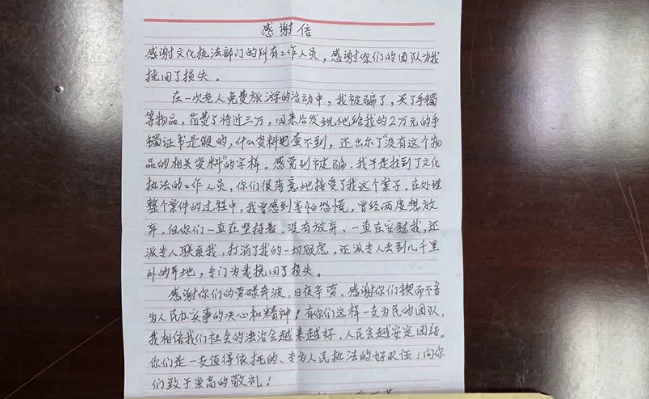 感谢信
感谢文化执法部门的所有工作人员，感谢你们的团队为我
挽回了损失。
在一次老人免费旅游的活动中，我被骗了，买了手镯
等物品，花费了将近三万，回来后发现他给我的2万元的手
镯证书是假的，什么资料也查不到，还出示了"没有这个物
品的相关资料"的字样。感觉到被骗，我于是找到了文化
执法的工作人员，你们很荣意地接受了我这个案子，在处理
整个案件的过程中，我曾感到害怕恐慌，曾经两度想放
弃，但你们一直在坚持着，没有放弃，一直在安慰我，还
派专人联系我，打消了我的一切顾虑，还派专人去到几千里
外的异地，专门为我挽回了损失。
感谢你们的劳碌奔波，日夜辛劳，感谢你们锲而不舍
为人民办实事的决心和精神！有你们这样一支为民的团队，
我相信我们社会的法治会越来越好，人民会越安定团结。
你们是一支值得依托的、专为人民执法的好队伍！向你
们致于崇高的敬礼！